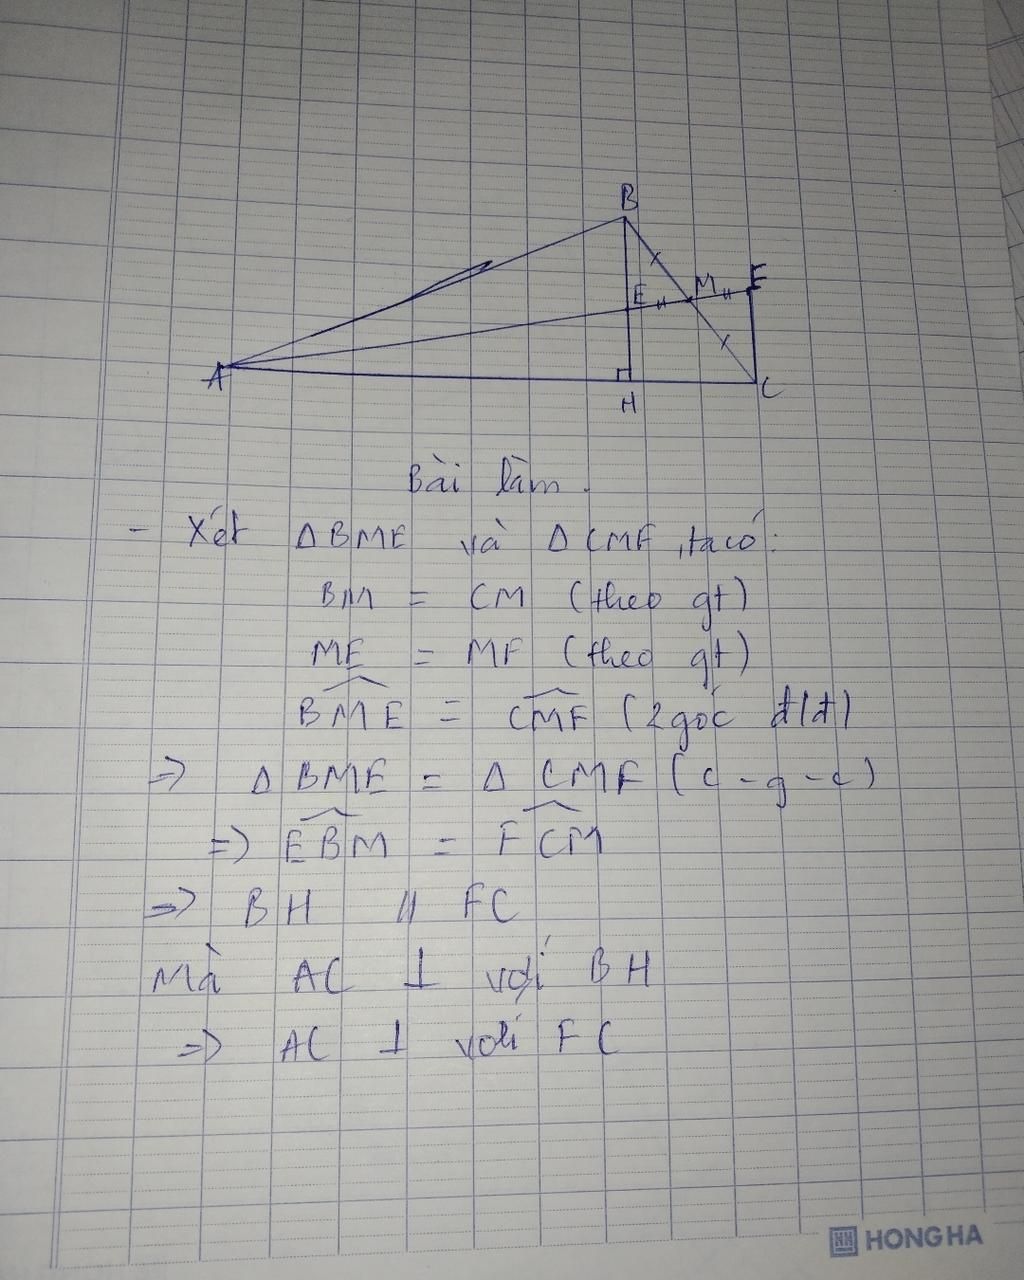 B
E M F
A H C
Bài làm.
- Xét Δ BME và Δ CMF, ta có:
BM = CM (theo gt)
ME = MF (theo gt)
BME = CMF (2 góc đ/đ)
=> Δ BME = Δ CMF (c-g-c)
=> EBM = FCM
=> BH // FC
Mà AC ⊥ với BH
=> AC ⊥ với FC
HONG HA